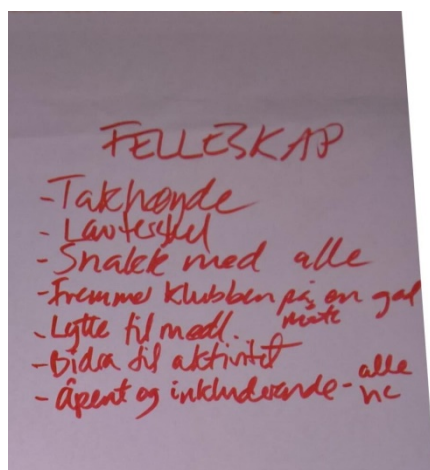 FELLESKAP
- Takhøyde
- Lavterskel
- Snakk med alle
- Fremme klubben på en god
måte
- Lytte til medl.
- Bidra til aktivitet
- Åpent og inkluderende - alle